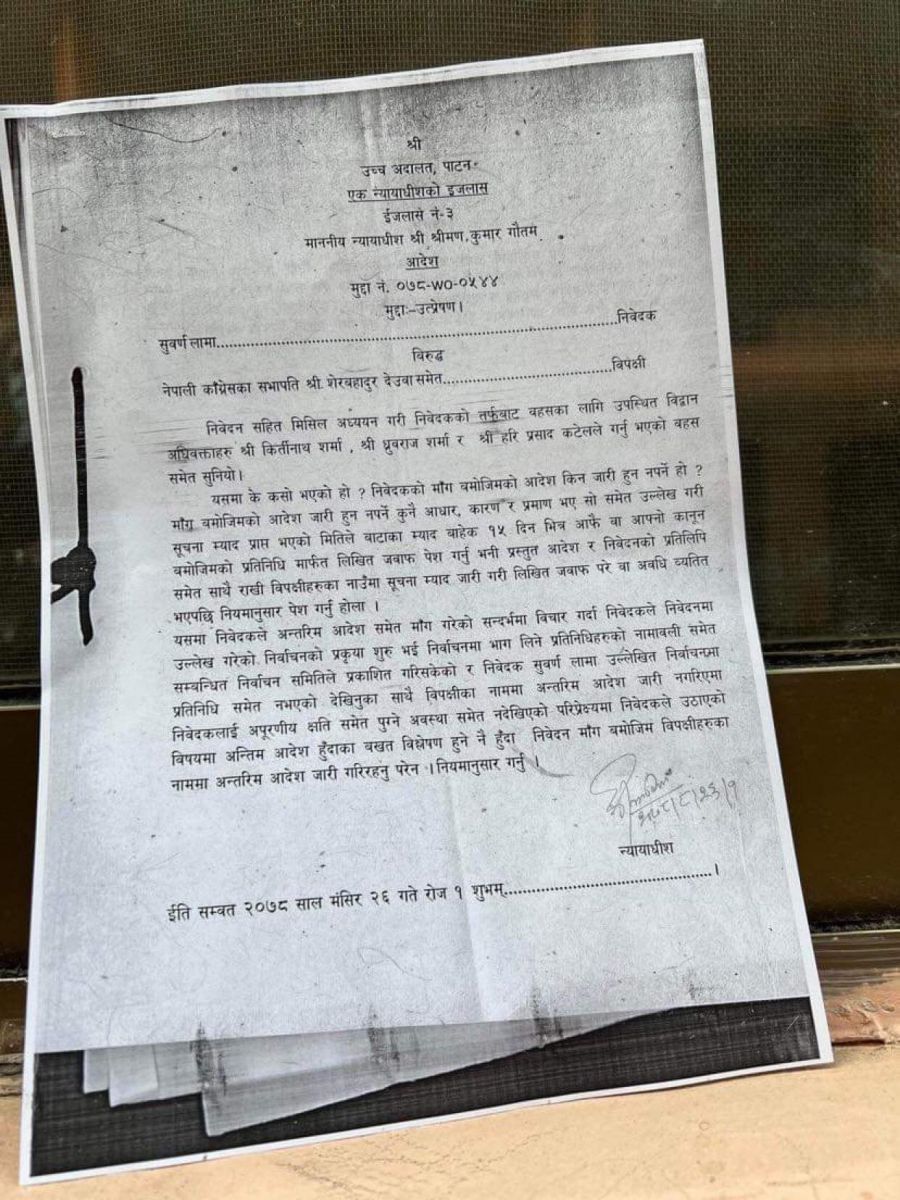 श्री
उच्च अदालत, पाटन
एक न्यायाधीशको इजलास
ईजलास नं-३
माननीय न्यायाधीश श्री श्रीमण कुमार गौतम
आदेश
मुद्दा नं. ०७८-WO-०५४४
मुद्दाः-उत्प्रेषण।
सुवर्ण लामा........................................................................निवेदक
विरुद्ध
नेपाली काँग्रेसका सभापति श्री शेरबहादुर देउवा समेत..............................विपक्षी
निवेदन सहित मिसिल अध्ययन गरी निवेदकको तर्फबाट वहसका लागि उपस्थित विद्वान
अधिवक्ताहरु श्री किर्तीनाथ शर्मा , श्री ध्रुवराज शर्मा र श्री हरि प्रसाद कटेलले गर्नु भएको बहस
समेत सुनियो।
यसमा के कसो भएको हो ? निवेदकको माँग बमोजिमको आदेश किन जारी हुन नपर्ने हो ?
माँग बमोजिमको आदेश जारी हुन नपर्ने कुनै आधार, कारण र प्रमाण भए सो समेत उल्लेख गरी
सूचना म्याद प्राप्त भएको मितिले बाटाका म्याद बाहेक १५ दिन भित्र आफै वा आफ्नो कानून
बमोजिमको प्रतिनिधि मार्फत लिखित जवाफ पेश गर्नु भनी प्रस्तुत आदेश र निवेदनको प्रतिलिपि
समेत साथै राखी विपक्षीहरुका नाउँमा सूचना म्याद जारी गरी लिखित जवाफ परे वा अवधि व्यतित
भएपछि नियमानुसार पेश गर्नु होला ।
यसमा निवेदकले अन्तरिम आदेश समेत माँग गरेको सन्दर्भमा विचार गर्दा निवेदकले निवेदनमा
उल्लेख गरेको निर्वाचनको प्रकृया शुरु भई निर्वाचनमा भाग लिने प्रतिनिधिहरुको नामावली समेत
सम्बन्धित निर्वाचन समितिले प्रकाशित गरिसकेको र निवेदक सुवर्ण लामा उल्लेखित निर्वाचनमा
प्रतिनिधि समेत नभएको देखिनुका साथै विपक्षीका नाममा अन्तरिम आदेश जारी नगरिएमा
निवेदकलाई अपूरणीय क्षति समेत पुग्ने अवस्था समेत नदेखिएको परिप्रेक्ष्यमा निवेदकले उठाएको
विषयमा अन्तिम आदेश हुँदाका बखत विश्लेषण हुने नै हुँदा निवेदन माँग बमोजिम विपक्षीहरुका
नाममा अन्तरिम आदेश जारी गरिरहनु परेन ।नियमानुसार गर्नु ।
न्यायाधीश
ईति सम्वत २०७८ साल मंसिर २६ गते रोज १ शुभम्..................................................।